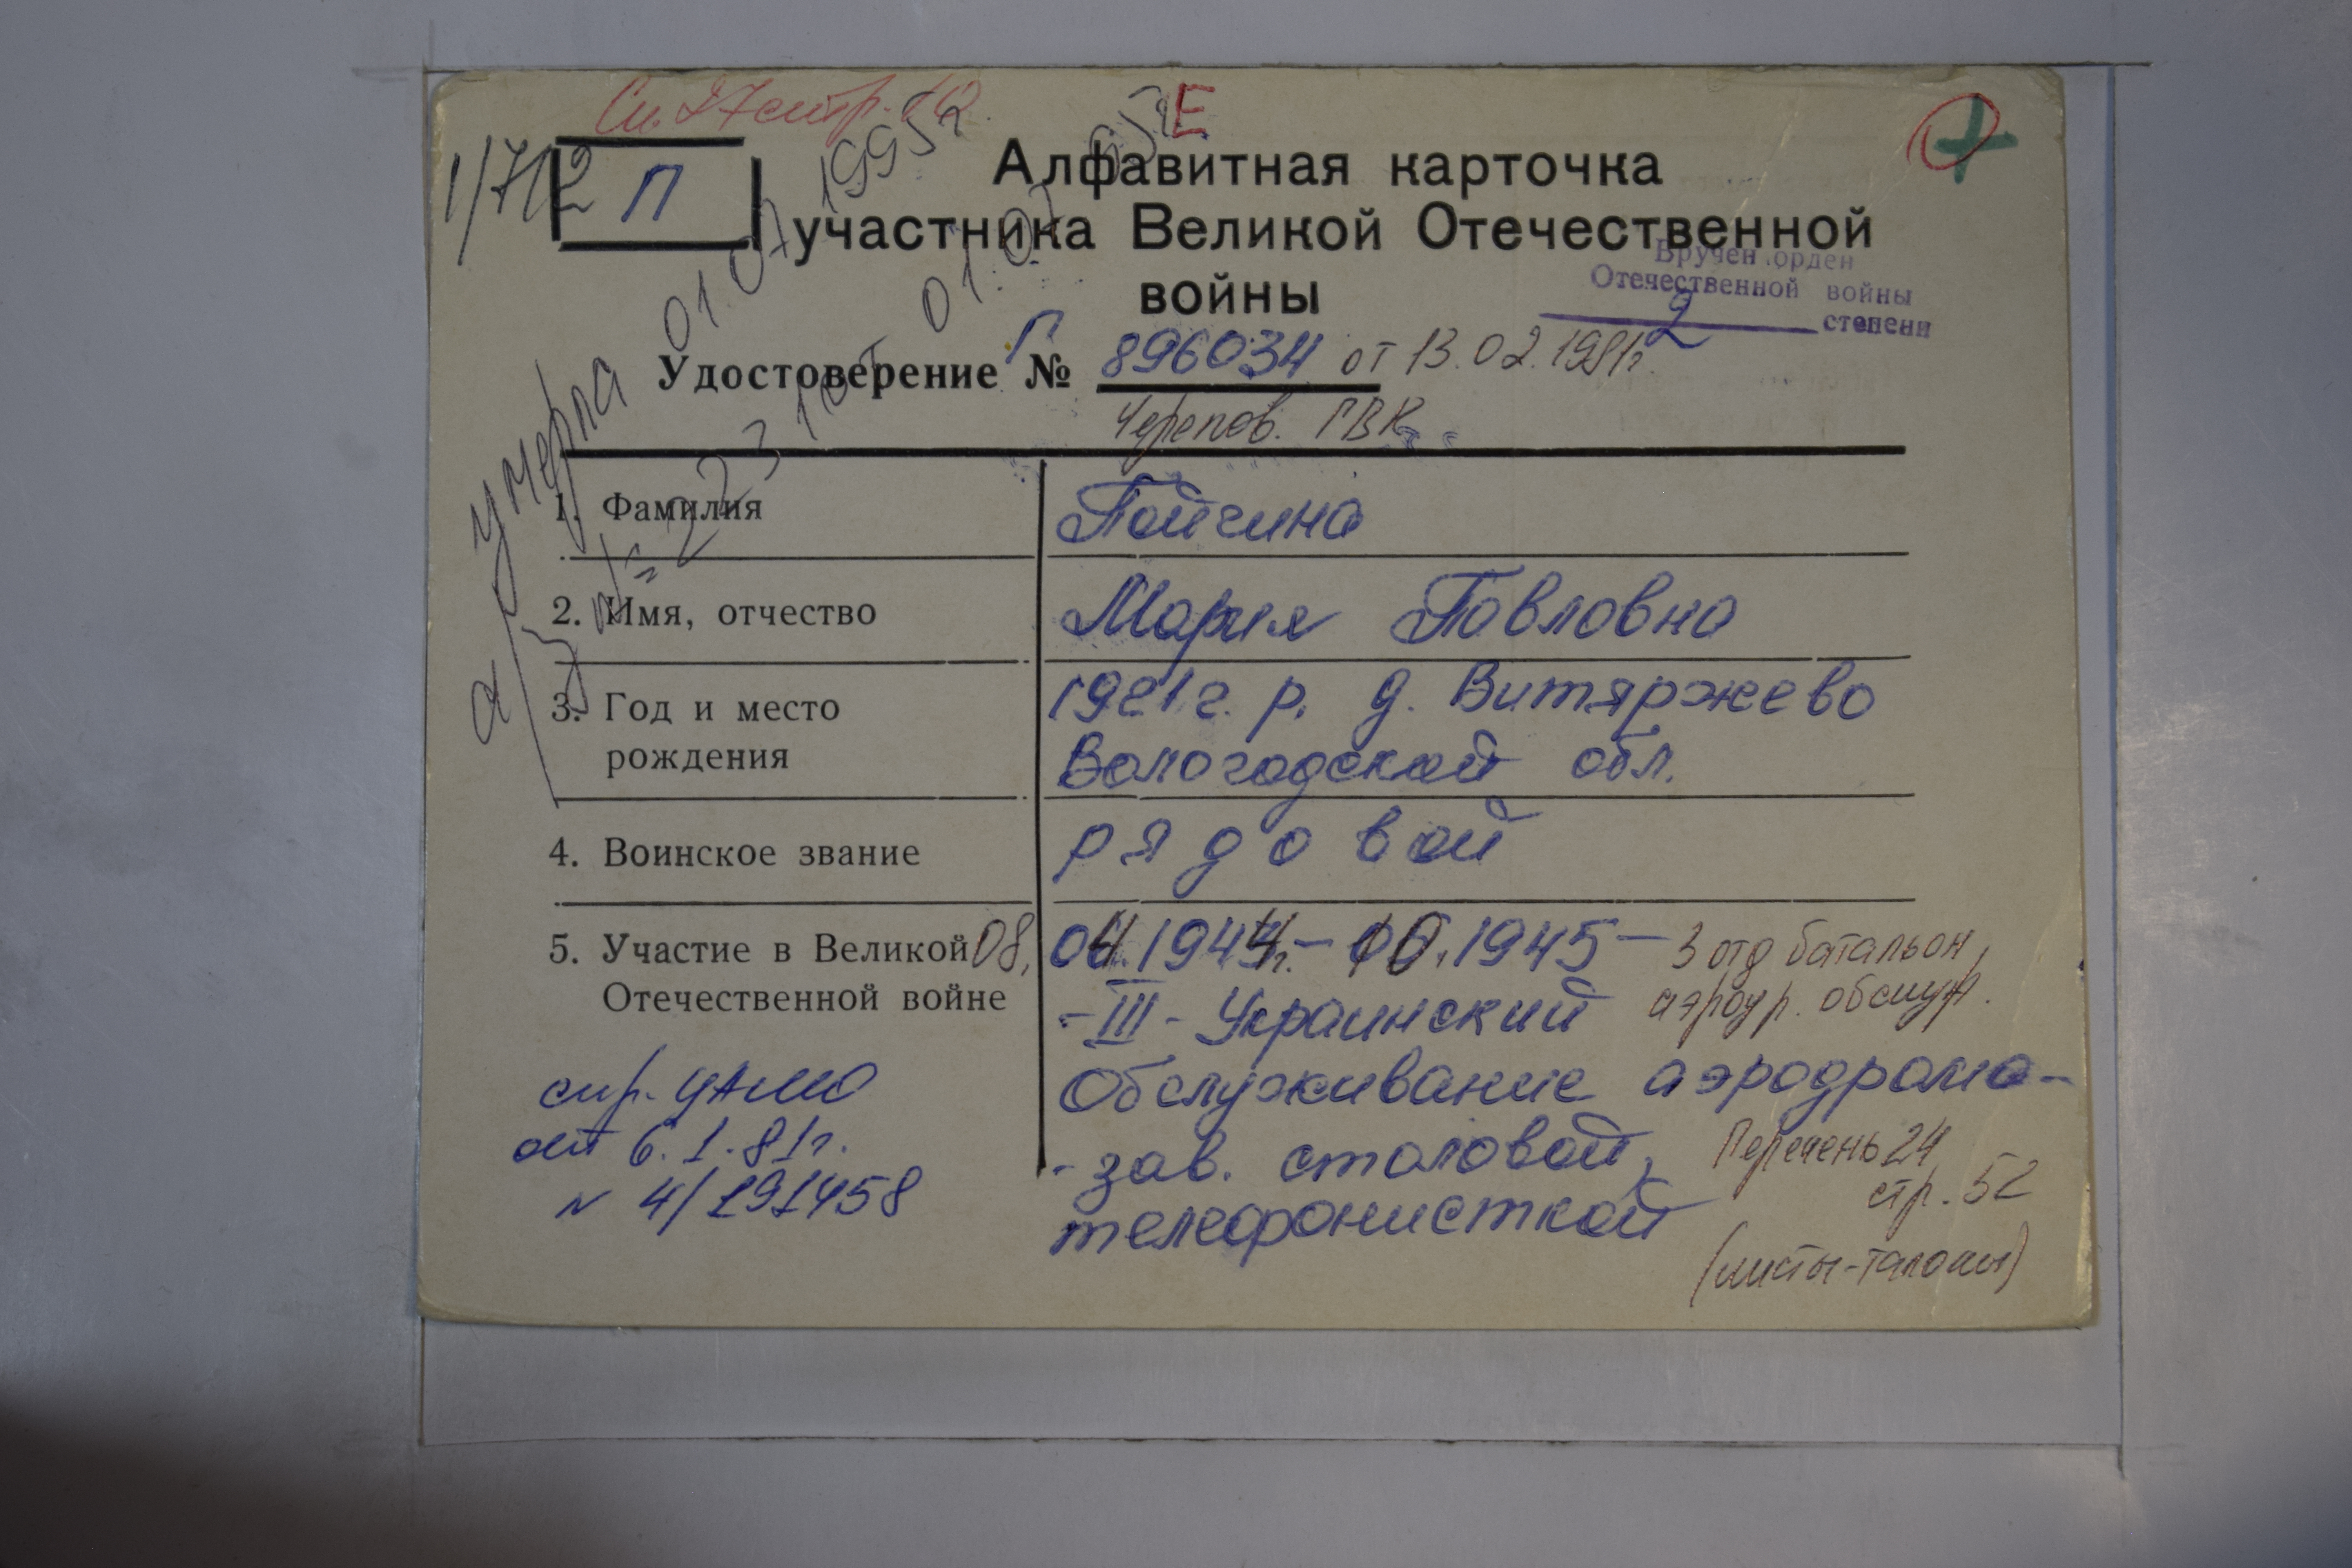 Сп. 27 стр. 10.
Е
1/712
П
Алфавитная карточка
участника Великой Отечественной
войны
Вручен орден
Отечественной войны
2 степени
Удостоверение Г № 896034 от 13.02.1981г.
Черепов. ГВК
умерла 01.07 1995г
а/з № 2231 от 01.07 95г
1. Фамилия
Пойгина
2. Имя, отчество
Мария Павловна
3. Год и место
рождения
1921 г. р. д. Витяржево
Вологодской обл.
4. Воинское звание
рядовой
5. Участие в Великой
Отечественной войне
08. 04.1944г. - 10.1945 - 3 отд батальон,
аэродр. обслуж.
- III - Украинский
Обслуживание аэродрома -
- зав. столовой,
телефонисткой
спр. ЦАМО
от 6.1.81г.
N 4/191458
Перечень 24
стр. 52
(листы-талоны)